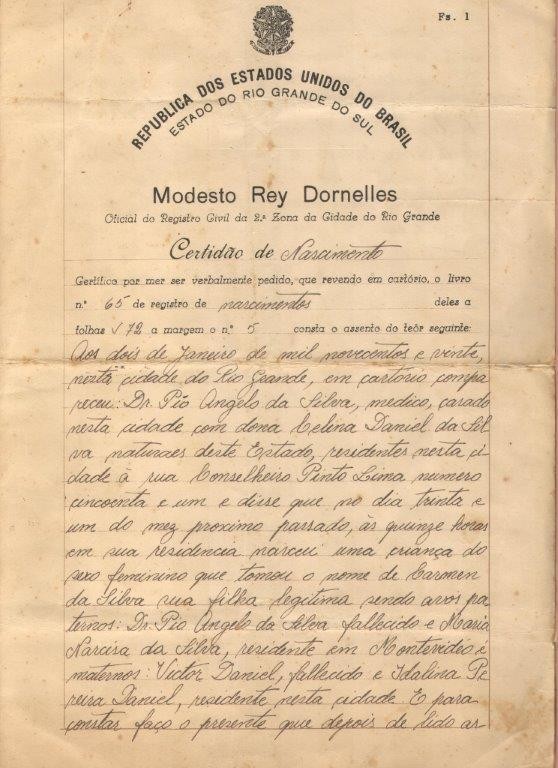 Fs. 1
REPUBLICA DOS ESTADOS UNIDOS DO BRASIL
ESTADO DO RIO GRANDE DO SUL
Modesto Rey Dornelles
Oficial do Registro Civil da 2.ª Zona da Cidade do Rio Grande
Certidão de Nascimento
Certifica por mer ser verbalmente pedido, que revendo em cartório, o livro
n.º 65 de registro de nascimentos deles a
folhas v 72 a margem o n.º 5 consta o assento do teôr seguinte:
Aos dois de Janeiro de mil novecentos e vinte,
nesta cidade do Rio Grande, em cartório compa
receu: Dr. Pio Angelo da Silva, medico, casado
nesta cidade com dona Celina Daniel da Sil
va naturaes deste Estado, residentes nesta ci-
dade à rua Conselheiro Pinto Lima numero
cincoenta e um e disse que no dia trinta e
um do mez proximo passado, às quinze horas
em sua residencia nasceu uma criança do
sexo feminino que tomou o nome de Carmen
da Silva sua filha legitima sendo avos pa
ternos: Dr. Pio Angelo da Silva fallecido e Maria
Narcisa da Silva, residente em Montevidéo e
maternos: Victor Daniel, fallecido e Idalina Pe
reira Daniel, residente nesta cidade. E para
constar faço o presente que depois de lido as